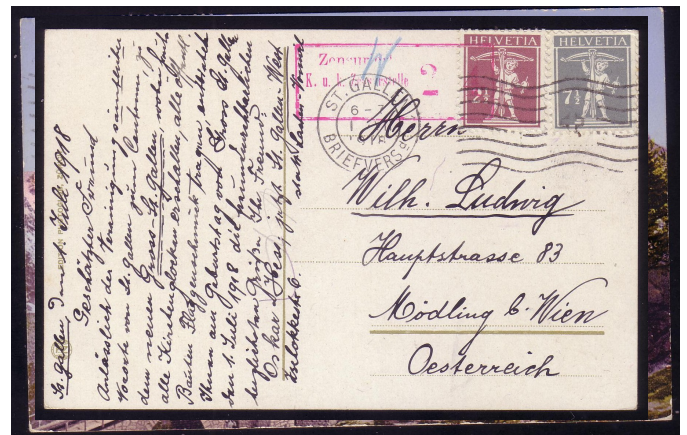 St. Gallen, den 1. Juli 1918
Geschätzter Freund
Anlässlich der Vereinigung sämtlicher
Vororte von St. Gallen zum Centrum zu
dem neuen Gross-St. Gallen, wobei heute
alle Kirchenglocken erschallen, alle öffentl.
Bauten Flaggenschmuck tragen, entbiete
Ihnen am Geburtstag von Gross St. Gallen
den 1. Juli 1918 die freundnachbarlichen
herzlichsten Grüsse Ihr Freund:
Oskar Hess, jetzt St. Gallen-West
HELVETIA
2½
HELVETIA
7½
Zensuriert
K. u. k. Zensurstelle
2
ST. GALLEN
BRIEFVERSD.
Herrn
Wilh. Ludwig
Hauptstrasse 83
Mödling b. Wien
Oesterreich